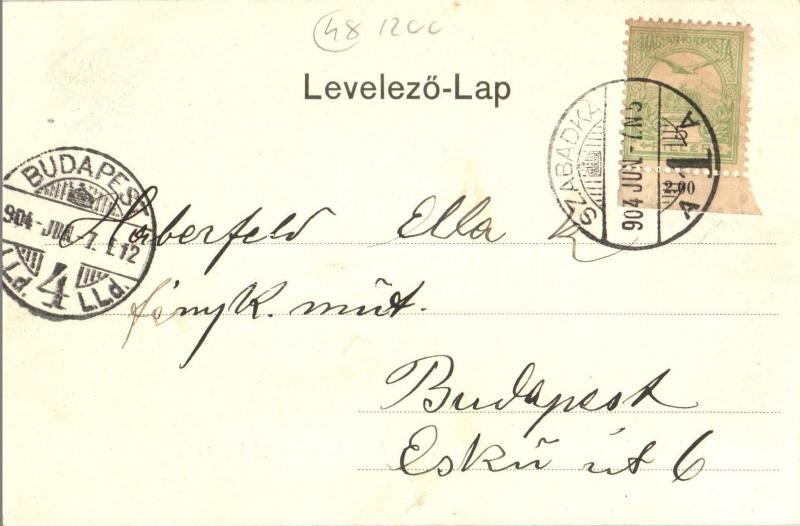 48 1200
Levelező-Lap
MAGYAR KIR. POSTA
SZABADKA
904 JUN
A 1 A
2.00
BUDAPEST
904 JUN 7. É.12
4
I.Ld. I.Ld.
Haberfeld Ella k
fényk. műt.
Budapest
Eskü út 6